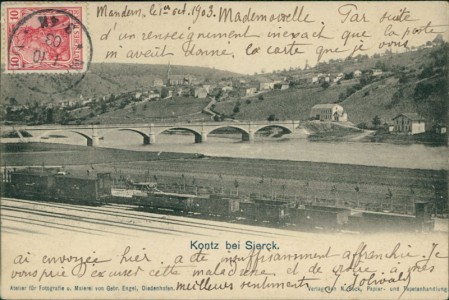 Mandern, le 1er oct. 1903. Mademoiselle Par suite
d'un renseignement inexact que l'on
m'avait donné, la carte que je vous
10 10
Kontz bei Sierck.
ai envoyée hier a été insuffisamment affranchie. Je
vous prie d'excuser cette maladresse et de croire à mes
meilleurs sentiments
Atelier für Fotografie u. Malerei von Gebr. Engel, Diedenhofen.
Papier- und Tapetenhandlung